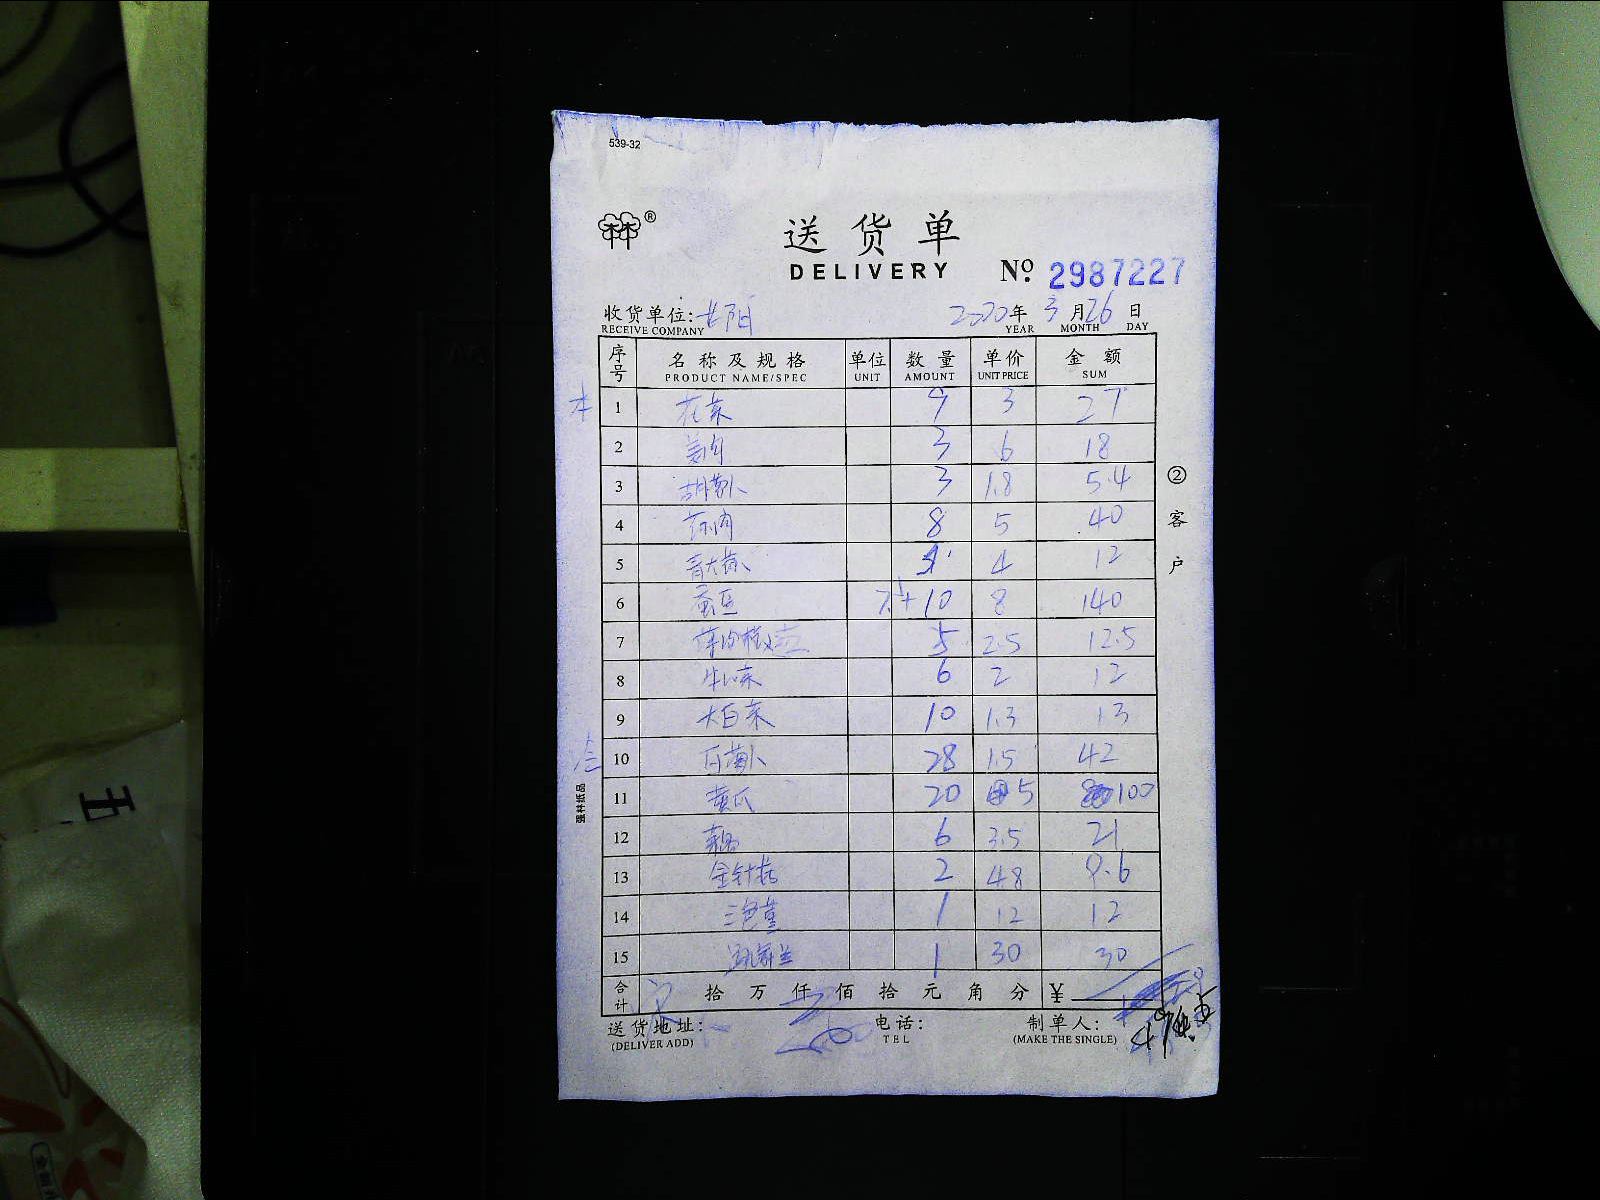 539-32
®
送货单
DELIVERY № 2987227
收货单位: 2020年3月26日
RECEIVE COMPANY YEAR MONTH DAY
序号 名称及规格 单位 数量 单价 金额
PRODUCT NAME/SPEC UNIT AMOUNT UNIT PRICE SUM
1 花菜 9 3 27
2 姜肉 3 6 18
3 胡萝卜 3 1.8 5.4
4 8 5 40
5 4 12
6 蚕豆 +10 8 140
7 5 2.5 12.5
8 牛心菜 6 2 12
9 大白菜 10 1.3 13
10 白萝卜 28 1.5 42
11 黄瓜 20 5 100
12 6 3.5 21
13 金针菇 2 48 9.6
14 三色堇 1 12 12
15 1 30 30
合计 拾万仟佰拾元角分 ¥
送货地址: 电话: 制单人:
(DELIVER ADD) TEL (MAKE THE SINGLE)
②客户
强林纸品
五